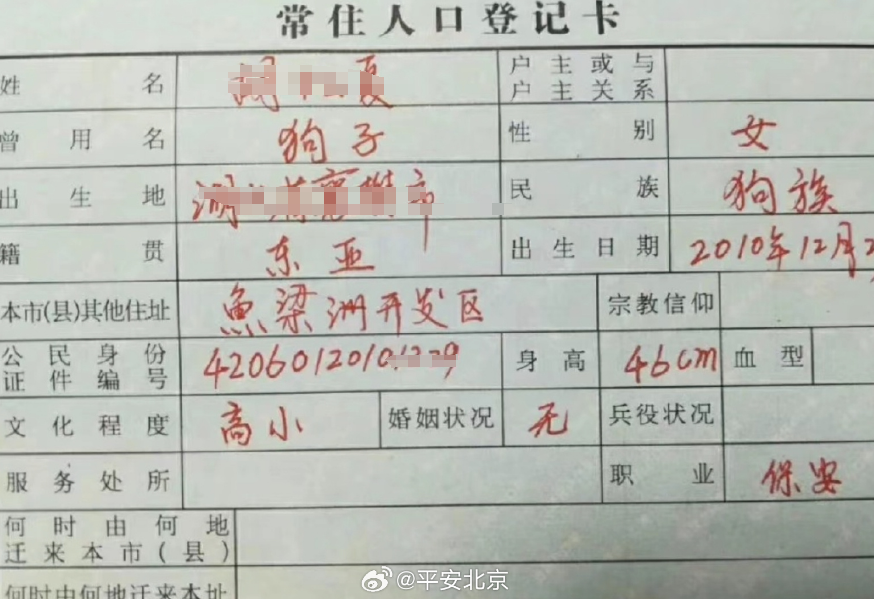 常住人口登记卡
姓名 夏 户主或与户主关系
曾用名 狗子 性别 女
出生地 市 民族 狗族
籍贯 东亚 出生日期 2010年12月2
本市(县)其他住址 魚梁洲开发区 宗教信仰
公民身份证件编号 42060120101 9 身高 46cm 血型
文化程度 高小 婚姻状况 无 兵役状况
服务处所 职业 保安
何时由何地迁来本市(县)
何时由何地迁来本址
@平安北京